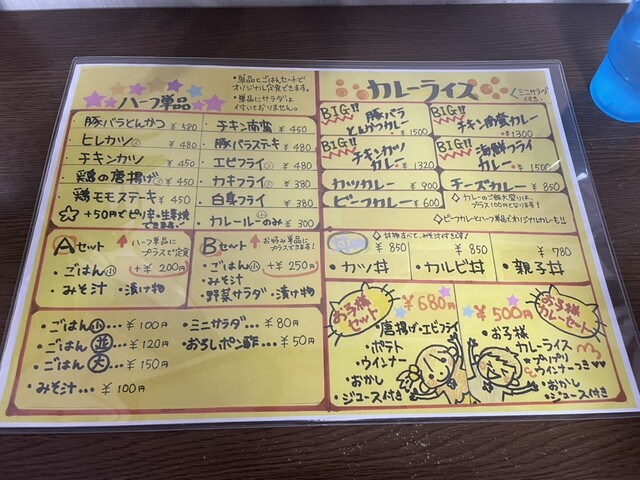 ハーフ単品
・単品とごはんセットで
オリジナル定食できます。
・単品にサラダは
付いておりません。
豚バラとんかつ ¥580
ヒレカツ② ¥480
チキンカツ ¥450
鶏の唐揚げ② ¥450
鶏モモステーキ ¥450
☆ +50円でピリ辛・生姜焼
できます!
チキン南蛮 ¥450
豚バラステーキ ¥480
エビフライ② ¥480
カキフライ② ¥380
白身フライ ¥380
カレールーのみ㊤ ¥300
Aセット
ハーフ単品に
プラスで定食
・ごはん小 + ¥200円
・みそ汁 ・漬け物
Bセット
お好み単品に
プラスできます!
・ごはん小 + ¥250円
・みそ汁
・野菜サラダ ・漬け物
・ごはん小… ¥100円
・ごはん並… ¥120円
・ごはん大… ¥150円
・みそ汁… ¥100円
・ミニサラダ… ¥80円
・おろしポン酢… ¥50円
カレーライス
ミニサラダ
付き
BIG!! 豚バラ
とんかつカレー ¥1500
BIG!! チキン南蛮カレー
¥1300
BIG!! チキンカツ
カレー ¥1320
BIG!! 海鮮フライ
カレー ¥1500
カツカレー ¥900
チーズカレー ¥850
ビーフカレー ¥600
☆ カレーのご飯大盛りは、
プラス100円となります!
◎ビーフカレーとハーフ単品でオリジナルカレーも!!
丼物すべて、みそ汁付きです!
¥850
・カツ丼
¥850
・カルビ丼
¥780
・親子丼
お子様
セット
¥680円
・唐揚げ・エビフライ
・ポテト
・ウインナー
・おかし
・ジュース付き
お子様
カレーセット
¥500円
・お子様
カレーライス
★プリプリ
ウインナーつき♥♥
・おかし
・ジュース付き